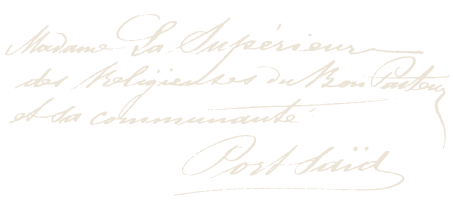 Madame La Supérieure
des Religieuses du Bon Pasteur
et sa communauté
Port-Saïd